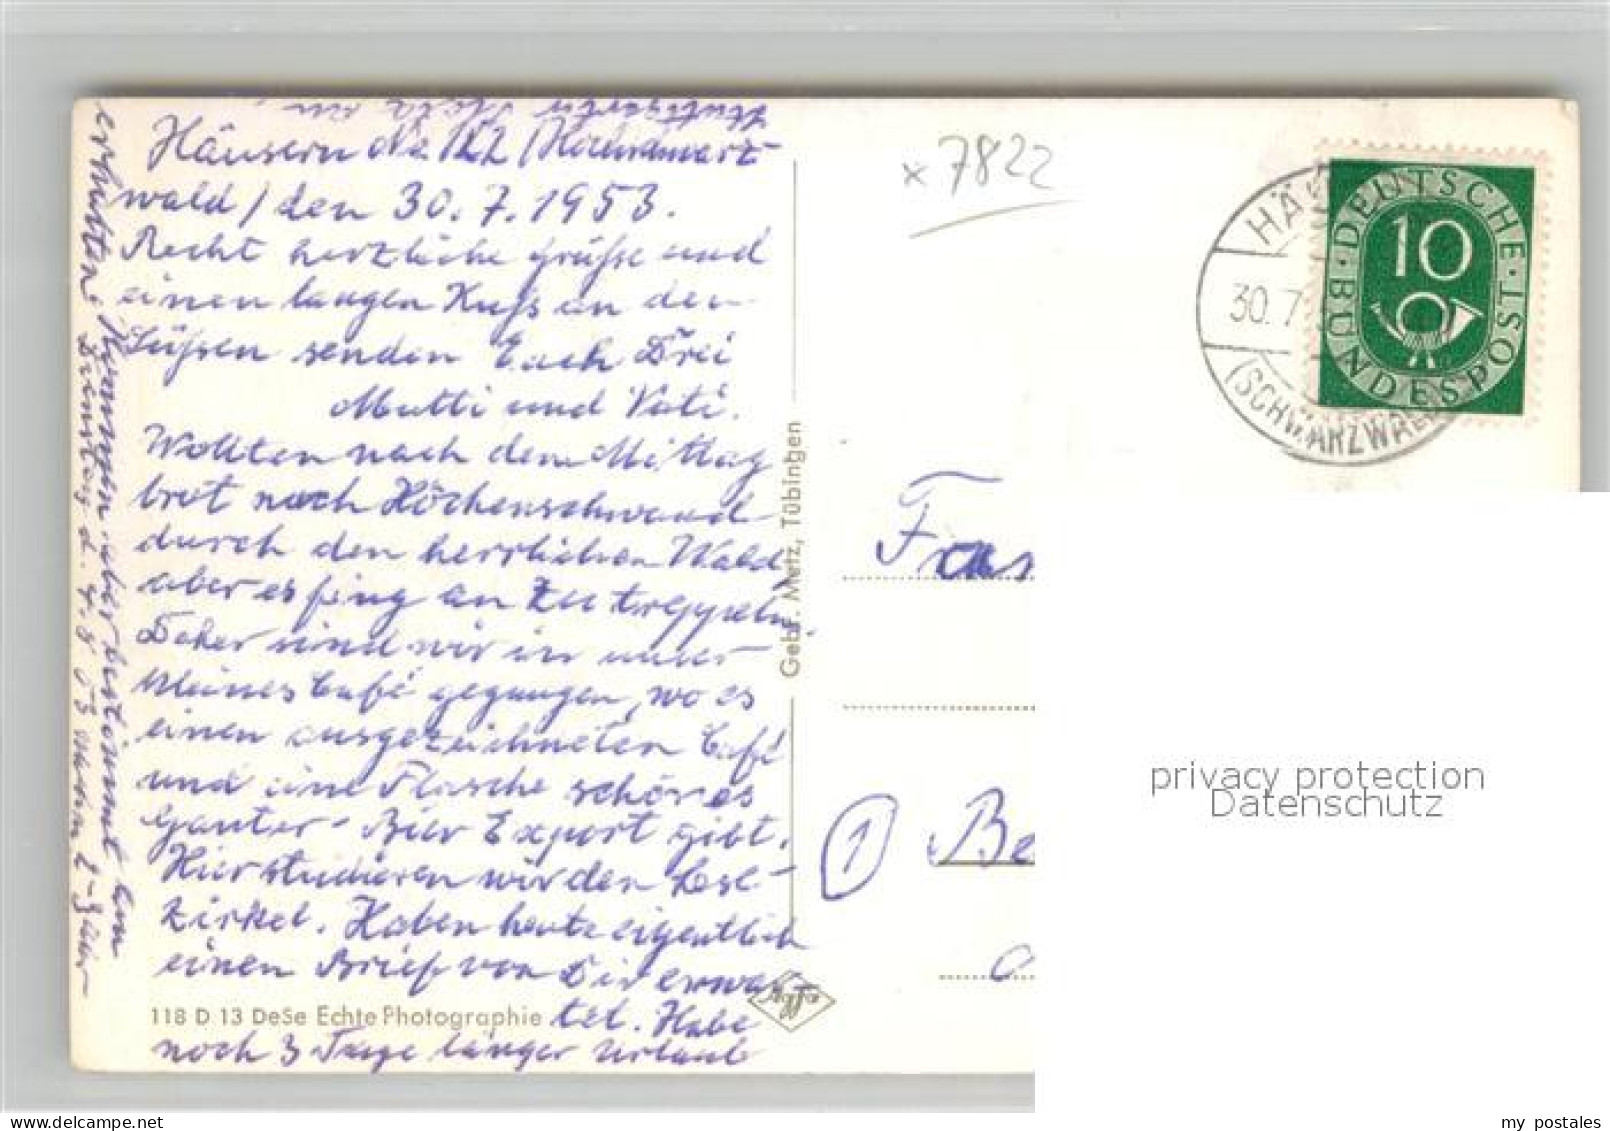 Häusern No 122 /Hochschwarz-
wald/ den 30.7.1953.
Recht herzliche Grüße und
einen langen Kuss an den
Süßen senden Euch Drei
Mutti und Vati.
Wollten nach dem Mittag
brot nach Höchenschwand
durch den herrlichen Wald,
aber es fing an zu tröppeln.
Daher sind wir in unser
kleines Café gegangen, wo es
einen ausgezeichneten Café
und eine Flasche schönes
Ganter-Bier Export gibt.
Hier studieren wir den Lese-
zirkel. Haben heute eigentlich
einen Brief von Dir erwar-
tet. Habe
noch 3 Tage länger Urlaub
erhalten. Kommen aber bestimmt am
Dienstag d. 4.8.53
118 D 13 DeSe Echte Photographie
Gebr. Metz, Tübingen
Agfa
x 7822
HÄUS
30.7
(SCHWARZWALD
DEUTSCHE BUNDESPOST
10
Frau
1
Be
privacy protection
Datenschutz
www.delcampe.net
my postales